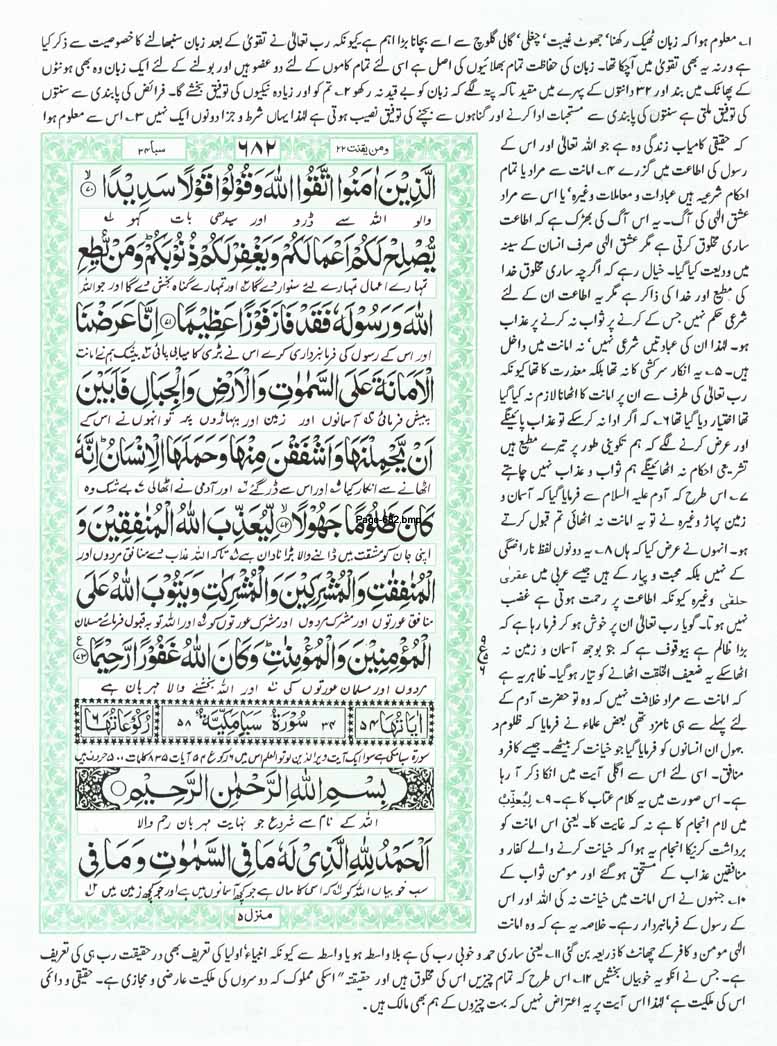 ۱۔ معلوم ہوا کہ زبان ٹھیک رکھنا' جھوٹ غیبت' چغلی' گالی گلوچ سے اسے بچانا بڑا اہم ہے کیونکہ رب تعالیٰ نے تقویٰ کے بعد زبان سنبھالنے کا خصوصیت سے ذکر کیا
ہے ورنہ یہ بھی تقویٰ میں آچکا تھا۔ زبان کی حفاظت تمام بھلائیوں کی اصل ہے اسی لئے تمام کاموں کے لئے دو عضو ہیں اور بولنے کے لئے ایک زبان وہ بھی ہونٹوں
کے پھاٹک میں بند اور ۳۲ دانتوں کے پہرے میں مقید تاکہ پتہ لگے کہ زبان کو بے قید نہ رکھو ۲۔ تم کو اور زیادہ نیکیوں کی توفیق بخشے گا۔ فرائض کی پابندی سے سنتوں
کی توفیق ملتی ہے سنتوں کی پابندی سے مستحبات ادا کرنے اور گناہوں سے بچنے کی توفیق نصیب ہوتی ہے لہٰذا یہاں شرط و جزا دونوں ایک نہیں ۳۔ اس سے معلوم ہوا
کہ حقیقی کامیاب زندگی وہ ہے جو اللہ تعالیٰ اور اس کے
رسول کی اطاعت میں گزرے ۴۔ امانت سے مراد یا تمام
احکام شرعیہ ہیں عبادات و معاملات وغیرہ' یا اس سے مراد
عشق الٰہی کی آگ۔ یہ اس آگ کی بھڑک ہے کہ اطاعت
ساری مخلوق کرتی ہے مگر عشق الٰہی صرف انسان کے سینہ
میں ودیعت کیا گیا۔ خیال رہے کہ اگرچہ ساری مخلوق خدا
کی مطیع اور خدا کی ذاکر ہے مگر یہ اطاعت ان کے لئے
شرعی حکم نہیں جس کے کرنے پر ثواب نہ کرنے پر عذاب
ہو۔ لہٰذا ان کی عبادتیں شرعی نہیں' نہ امانت میں داخل
ہیں۔ ۵۔ یہ انکار سرکشی کا نہ تھا بلکہ معذرت کا تھا کیونکہ
رب تعالیٰ کی طرف سے ان پر امانت کا اٹھانا لازم نہ کیا گیا
تھا اختیار دیا گیا تھا ۶۔ کہ اگر ادا نہ کرسکے تو عذاب پائینگے
اور عرض کرنے لگے کہ ہم تکوینی طور پر تیرے مطیع ہیں
تشریعی احکام نہ اٹھائینگے ہم ثواب و عذاب نہیں چاہتے
۷۔ اس طرح کہ آدم علیہ السلام سے فرمایا گیا کہ آسمان و
زمین پہاڑ وغیرہ نے تو یہ امانت نہ اٹھائی تم قبول کرتے
ہو۔ انہوں نے عرض کیا کہ ہاں ۸۔ یہ دونوں لفظ ناراضگی
کے نہیں بلکہ محبت و پیار کے ہیں جیسے عربی میں عقریٰ
حلقی وغیرہ کیونکہ اطاعت پر رحمت ہوتی ہے غضب
نہیں ہوتا۔ گویا رب تعالیٰ ان پر خوش ہو کر فرما رہا ہے کہ
بڑا ظالم ہے بیوقوف ہے کہ جو بوجھ آسمان و زمین نہ
اٹھا سکے یہ ضعیف الخلقت اٹھانے کو تیار ہوگیا۔ ظاہر یہ ہے
کہ امانت سے مراد خلافت نہیں کہ وہ تو حضرت آدم کے
لئے پہلے سے ہی نامزد تھی بعض علماء نے فرمایا کہ ظلوم د
جہول ان انسانوں کو فرمایا گیا جو خیانت کر بیٹھے۔ جیسے کافر و
منافق۔ اسی لئے اس سے اگلی آیت میں انکا ذکر آ رہا
ہے۔ اس صورت میں یہ کلام عتاب کا ہے۔ ۹۔ لِیُعَذِّبَ
میں لام انجام کا ہے نہ کہ غایت کا۔ یعنی اس امانت کو
برداشت کرنیکا انجام یہ ہوا کہ خیانت کرنے والے کفار و
منافقین عذاب کے مستحق ہوگئے اور مومن ثواب کے
۱۰۔ جنہوں نے اس امانت میں خیانت نہ کی اللہ اور اس
کے رسول کے فرمانبردار رہے۔ خلاصہ یہ ہے کہ وہ امانت
ومن یقنت ۲۲ ۶۸۲ سبا ۳۴
الَّذِیْنَ اٰمَنُوا اتَّقُوا اللّٰهَ وَقُوْلُوْا قَوْلًا سَدِیْدًا ﴿۷۰﴾
والو اللہ سے ڈرو اور سیدھی بات کہو
یُّصْلِحْ لَكُمْ اَعْمَالَكُمْ وَیَغْفِرْ لَكُمْ ذُنُوْبَكُمْ وَمَنْ یُّطِعِ
تمہارے اعمال تمہارے لئے سنوار دے گا اور تمہارے گناہ بخش دے گا اور جو اللہ
اللّٰهَ وَرَسُوْلَهٗ فَقَدْ فَازَ فَوْزًا عَظِیْمًا ﴿۷۱﴾ اِنَّا عَرَضْنَا
اور اس کے رسول کی فرمانبرداری کرے اس نے بڑی کامیابی پائی بیشک ہم نے امانت
الْاَمَانَةَ عَلَى السَّمٰوٰتِ وَالْاَرْضِ وَالْجِبَالِ فَاَبَیْنَ
پیش فرمائی آسمانوں اور زمین اور پہاڑوں پر تو انہوں نے اس کے
اَنْ یَّحْمِلْنَهَا وَاَشْفَقْنَ مِنْهَا وَحَمَلَهَا الْاِنْسَانُ اِنَّهٗ
اٹھانے سے انکار کیا اور اس سے ڈر گئے اور آدمی نے اٹھالی بے شک وہ
كَانَ ظَلُوْمًا جَهُوْلًا ﴿۷۲﴾ لِّیُعَذِّبَ اللّٰهُ الْمُنٰفِقِیْنَ وَ
Page-682.bmp
اپنی جان کو مشقت میں ڈالنے والا بڑا نادان ہے تاکہ اللہ عذاب دے منافق مردوں اور
الْمُنٰفِقٰتِ وَالْمُشْرِكِیْنَ وَالْمُشْرِكٰتِ وَیَتُوْبَ اللّٰهُ عَلَى
منافق عورتوں اور مشرک مردوں اور مشرک عورتوں کو اور اللہ توبہ قبول فرمائے مسلمان
الْمُؤْمِنِیْنَ وَالْمُؤْمِنٰتِ وَكَانَ اللّٰهُ غَفُوْرًا رَّحِیْمًا ﴿۷۳﴾
مردوں اور مسلمان عورتوں کی اور اللہ بخشنے والا مہربان ہے
اٰیَاتُهَا ۵۴ ۳۴ سُوْرَةُ سَبَاٍ مَّكِّیَّةٌ ۵۸ رُكُوْعَاتُهَا ۶
بِسْمِ اللّٰهِ الرَّحْمٰنِ الرَّحِیْمِ
اللہ کے نام سے شروع جو نہایت مہربان رحم والا
اَلْحَمْدُ لِلّٰهِ الَّذِیْ لَهٗ مَا فِی السَّمٰوٰتِ وَمَا فِی
سب خوبیاں اللہ کو کہ اسی کا مال ہے جو کچھ آسمانوں میں ہے اور جو کچھ زمین میں
منزل ۵
الٰہی مومن و کافر کے چھانٹ کا ذریعہ بن گئی ۱۱۔ یعنی ساری حمد و خوبی رب کی ہے بلاواسطہ ہو یا واسطہ سے کیونکہ انبیاء' اولیا کی تعریف بھی در حقیقت رب ہی کی تعریف
ہے۔ جس نے انکو یہ خوبیاں بخشیں ۱۲۔ اس طرح کہ تمام چیزیں اس کی مخلوق ہیں اور حقیقتہ" اسکی مملوک کہ دوسروں کی ملکیت عارضی و مجازی ہے۔ حقیقی و دائمی
اس کی ملکیت ہے' لہٰذا اس آیت پر یہ اعتراض نہیں کہ بہت چیزوں کے ہم بھی مالک ہیں۔